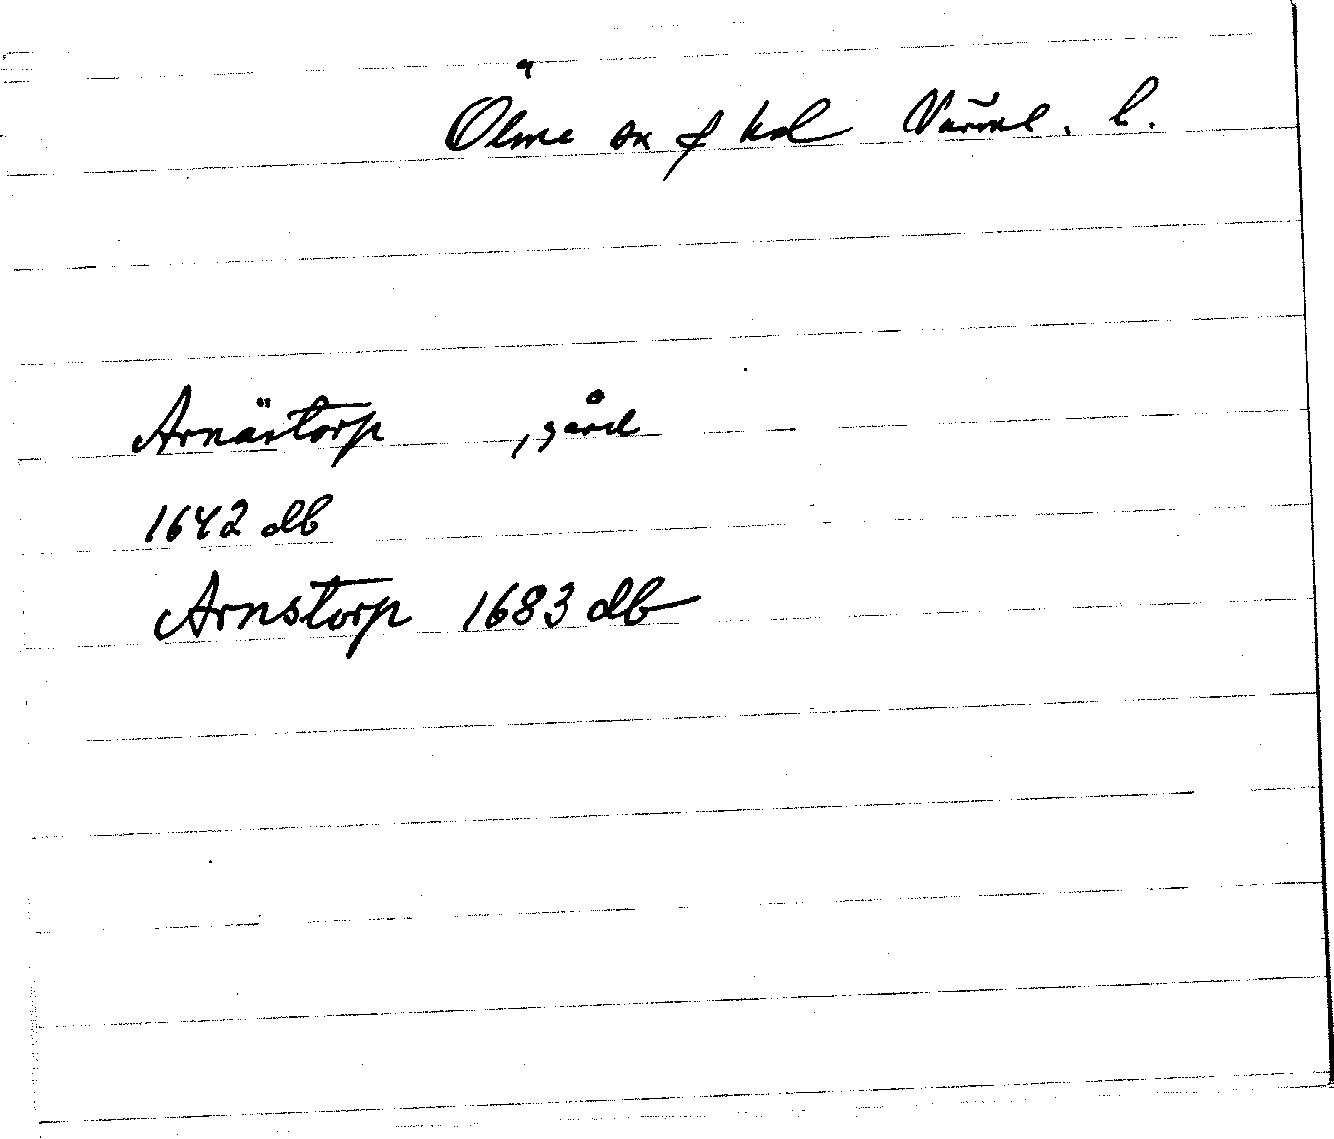 Ölme sn o hd Värml. l.
Arnästorp , gård
1642 db
Arnstorp 1683 db